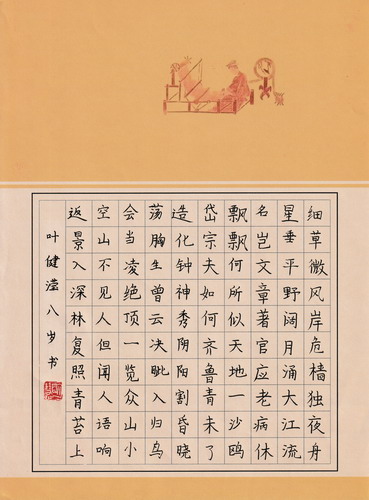 细草微风岸危樯独夜舟
星垂平野阔月涌大江流
名岂文章著官应老病休
飘飘何所似天地一沙鸥
岱宗夫如何齐鲁青未了
造化钟神秀阴阳割昏晓
荡胸生曾云决眦入归鸟
会当凌绝顶一览众山小
空山不见人但闻人语响
返景入深林复照青苔上
叶健滢八岁书